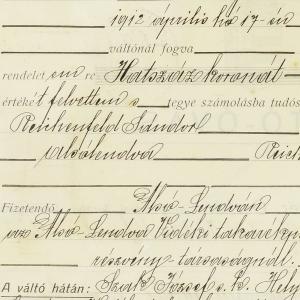 1912 április hó 17-én
váltónál fogva
rendelet em re Hatszáz koronát
értékét felvettem s tegye számolásba tudós
Reichenfeld Sándor
Alsólendva Reich
Fizetendő Alsó-Lendván
az Alsó Lendva Vidéki takarékp
részvény-társaságnál.
A váltó hátán: Szak József s. k. Hely